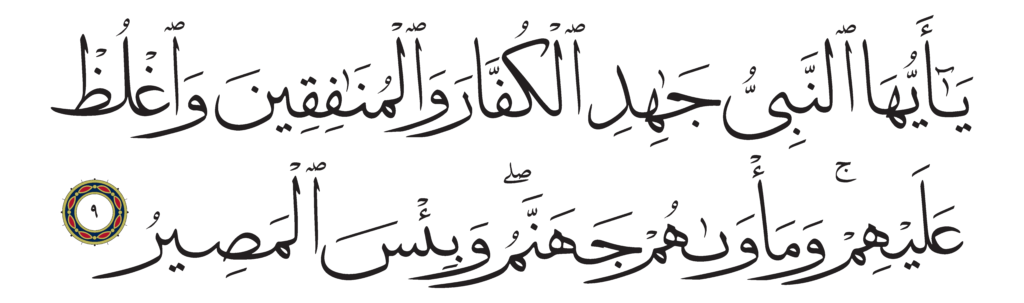 يَـٰٓأَيُّهَا ٱلنَّبِىُّ جَـٰهِدِ ٱلْكُفَّارَ وَٱلْمُنَـٰفِقِينَ وَٱغْلُظْ
عَلَيْهِمْ ۚ وَمَأْوَىٰهُمْ جَهَنَّمُ ۖ وَبِئْسَ ٱلْمَصِيرُ ٩